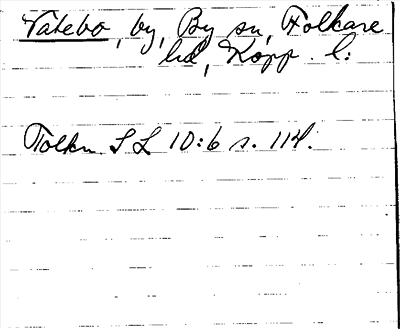 Vatebo, by, By sn, Folkare
hd, Kopp. l:
Tolkn SL 10:6 s. 114.